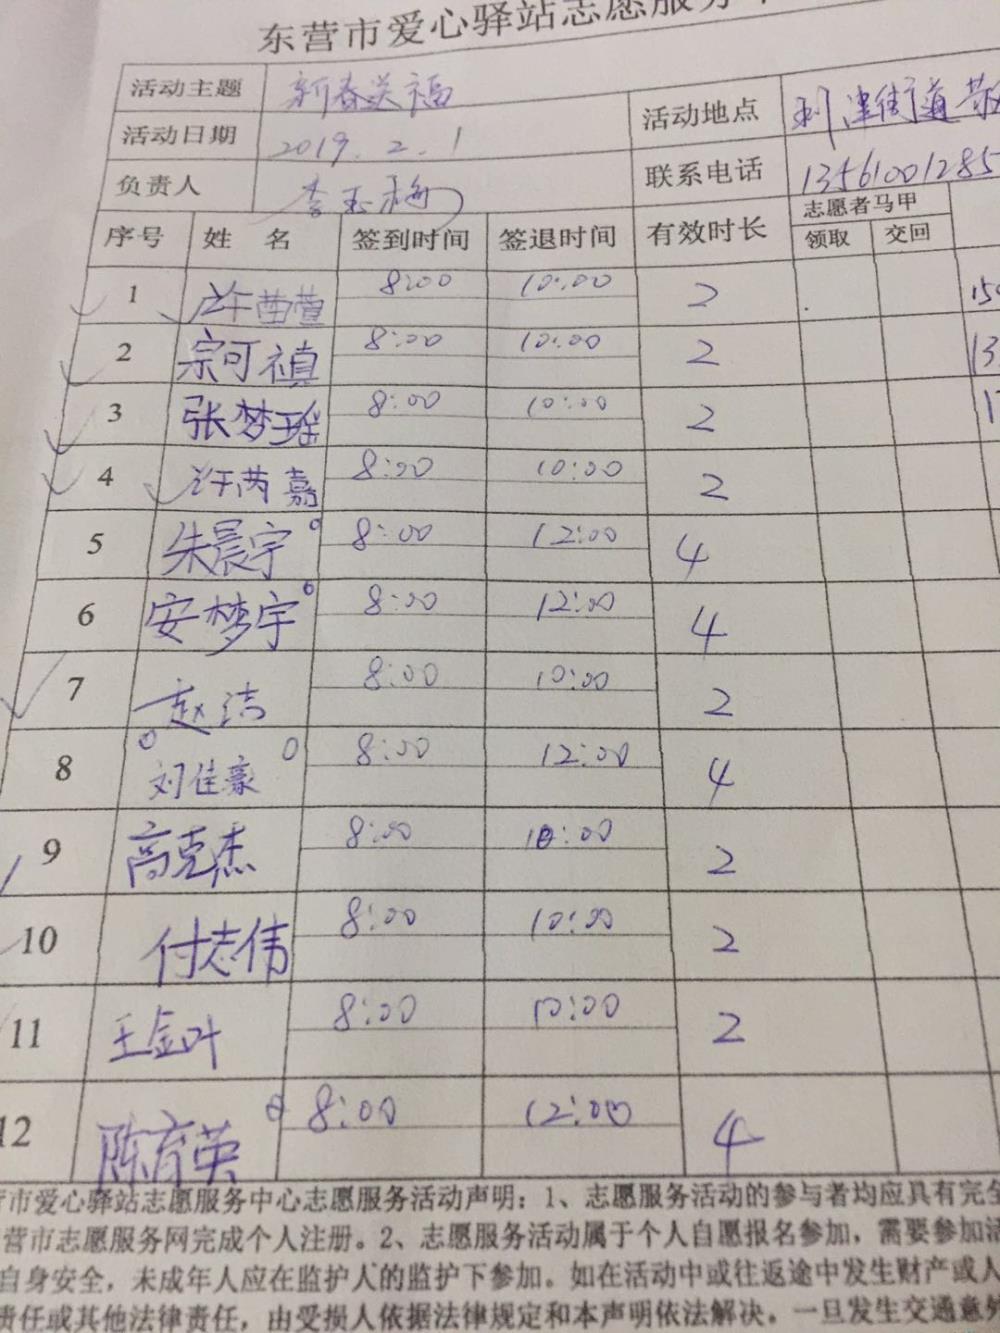 东营市爱心驿站志愿服务
活动主题 新春送福 活动地点 利津街道
活动日期 2019.2.1 联系电话 13561001285
负责人 李玉梅
序号 姓 名 签到时间 签退时间 有效时长 志愿者马甲 领取 交回
1 许茜萱 8:00 10:00 2
2 宗可禛 8:00 10:00 2 13
3 张梦瑶 8:00 10:00 2
4 许芮嘉 8:00 10:00 2
5 朱晨宇 8:00 12:00 4
6 安梦宇 8:00 12:00 4
7 赵洁 8:00 10:00 2
8 刘佳豪 8:00 12:00 4
9 高克杰 8:00 10:00 2
10 付志伟 8:00 10:00 2
11 王金叶 8:00 10:00 2
12 陈育英 8:00 12:00 4
市爱心驿站志愿服务中心志愿服务活动声明：1、志愿服务活动的参与者均应具有完全
营市志愿服务网完成个人注册。2、志愿服务活动属于个人自愿报名参加，需要参加活
自身安全，未成年人应在监护人的监护下参加。如在活动中或往返途中发生财产或人
责任或其他法律责任，由受损人依据法律规定和本声明依法解决。一旦发生交通意外